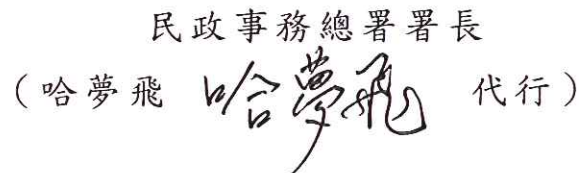 民政事務總署署長
(哈夢飛 哈夢飛 代行)